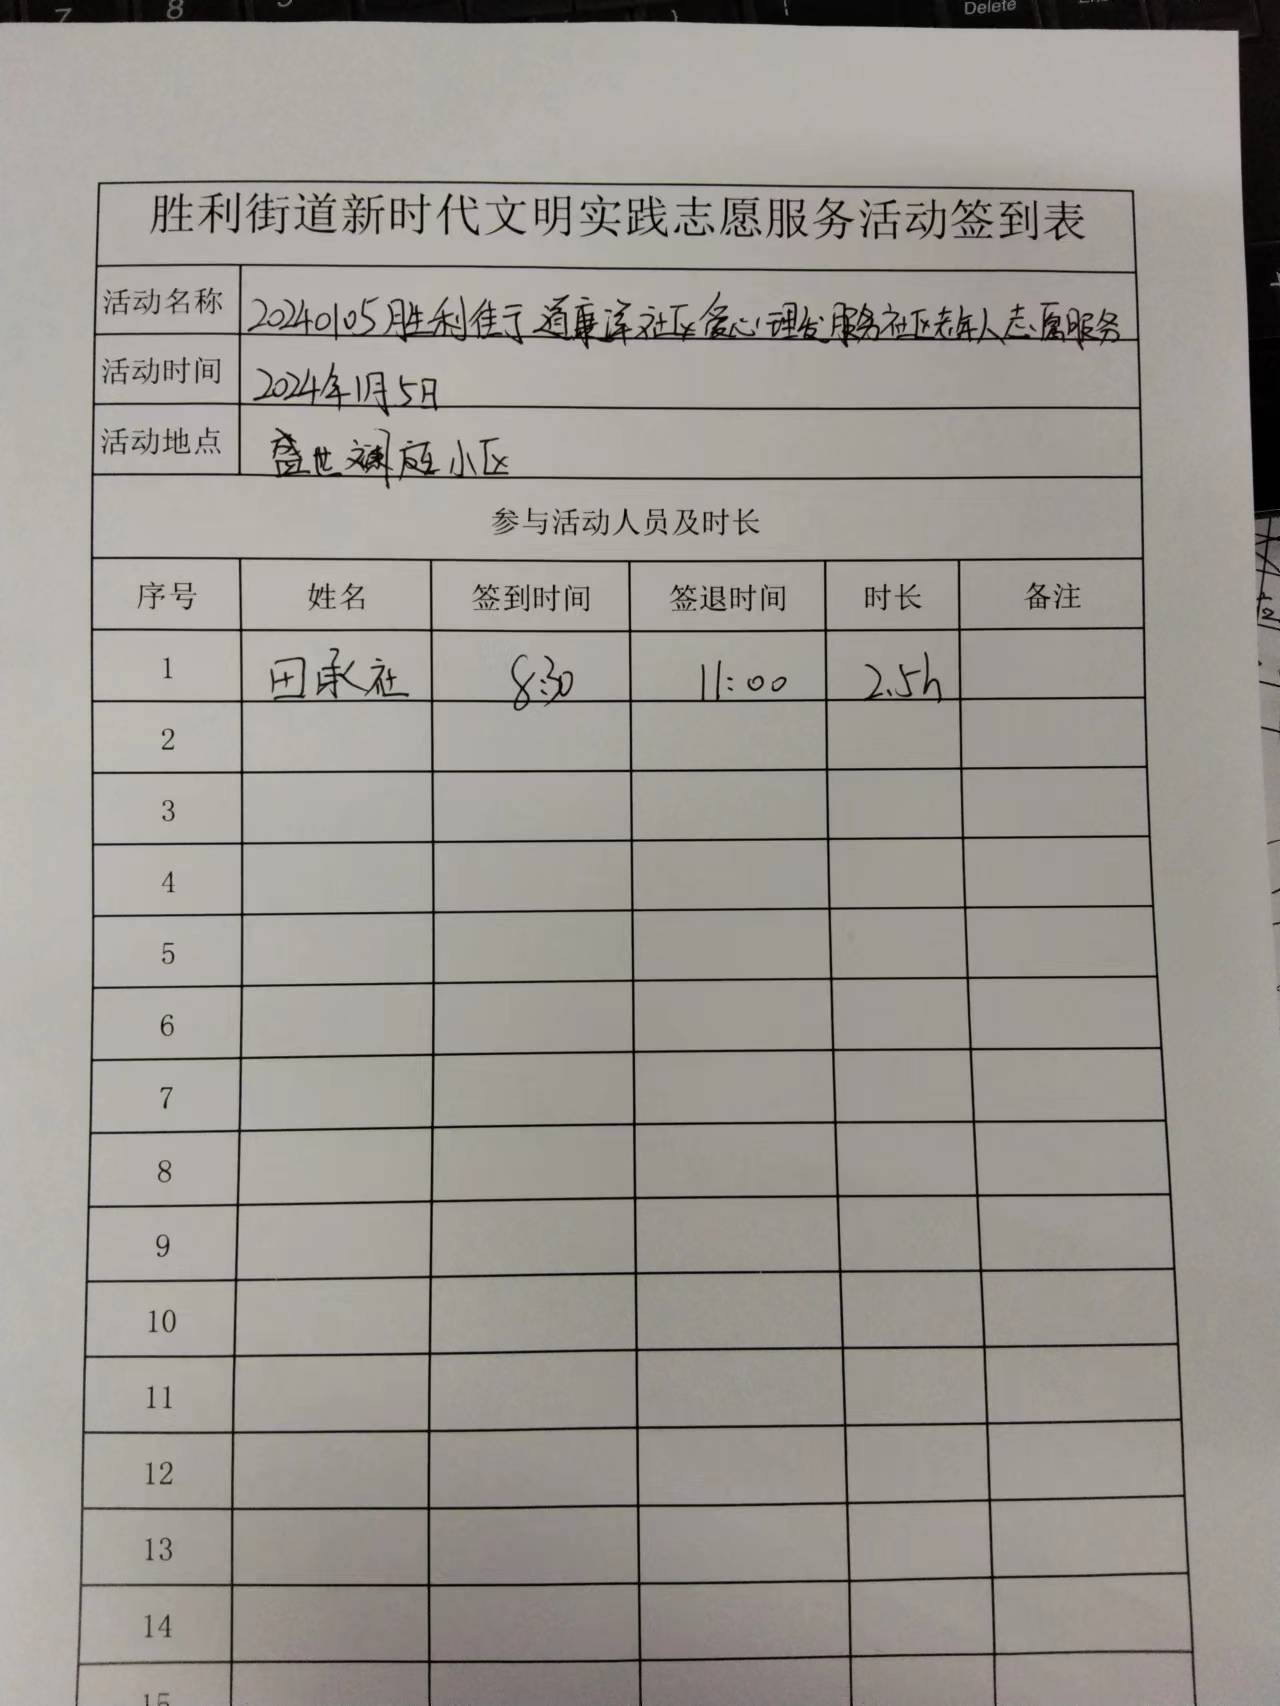 7 8 Delete
胜利街道新时代文明实践志愿服务活动签到表
活动名称 20240105胜利街道康泽社区爱心理发服务社区老年人志愿服务
活动时间 2024年1月5日
活动地点 盛世斓庭小区
参与活动人员及时长
序号 姓名 签到时间 签退时间 时长 备注
1 田承社 8:30 11:00 2.5h
2
3
4
5
6
7
8
9
10
11
12
13
14
15